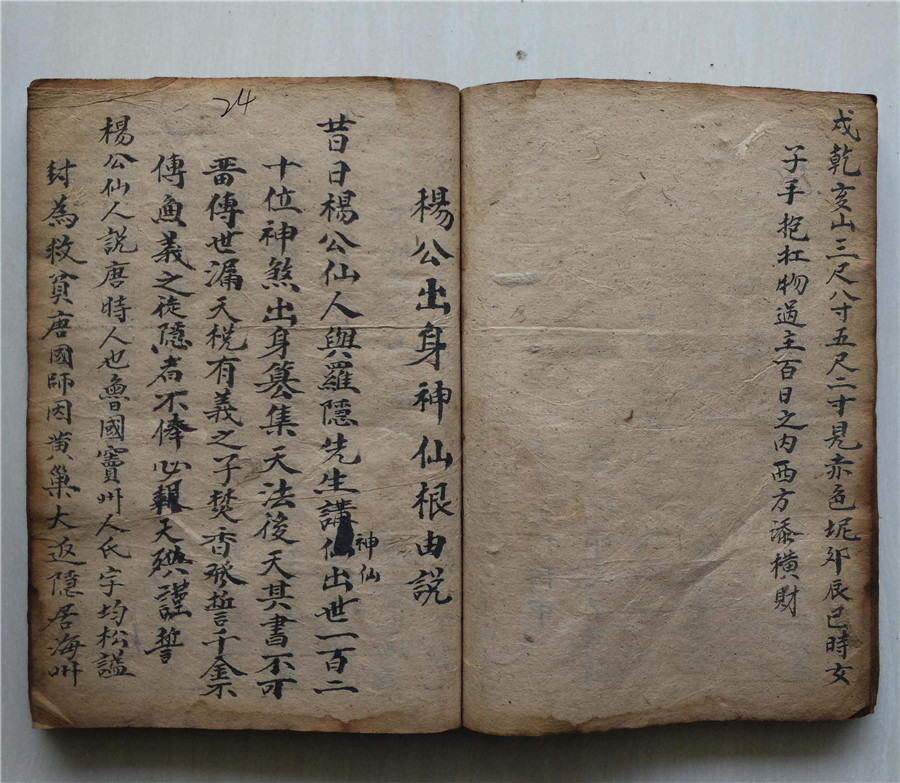 戌乾亥山三尺八寸五尺二寸見赤色坭夘辰巳時女
子手抱杠物過主百日之内西方添橫財
楊公出身神仙根由説
昔日楊公仙人與羅隱先生講神仙出世一百二
十位神煞出身篡集天法後天其書不可
畨傳世漏天税有義之子焚香發誓千金不
傳魚義之徒隱者不俸必報天殃謹誓
楊公仙人説唐時人也魯國竇州人氏字均松謚
封為救貧唐國師因黄巢大返隱居海州
24